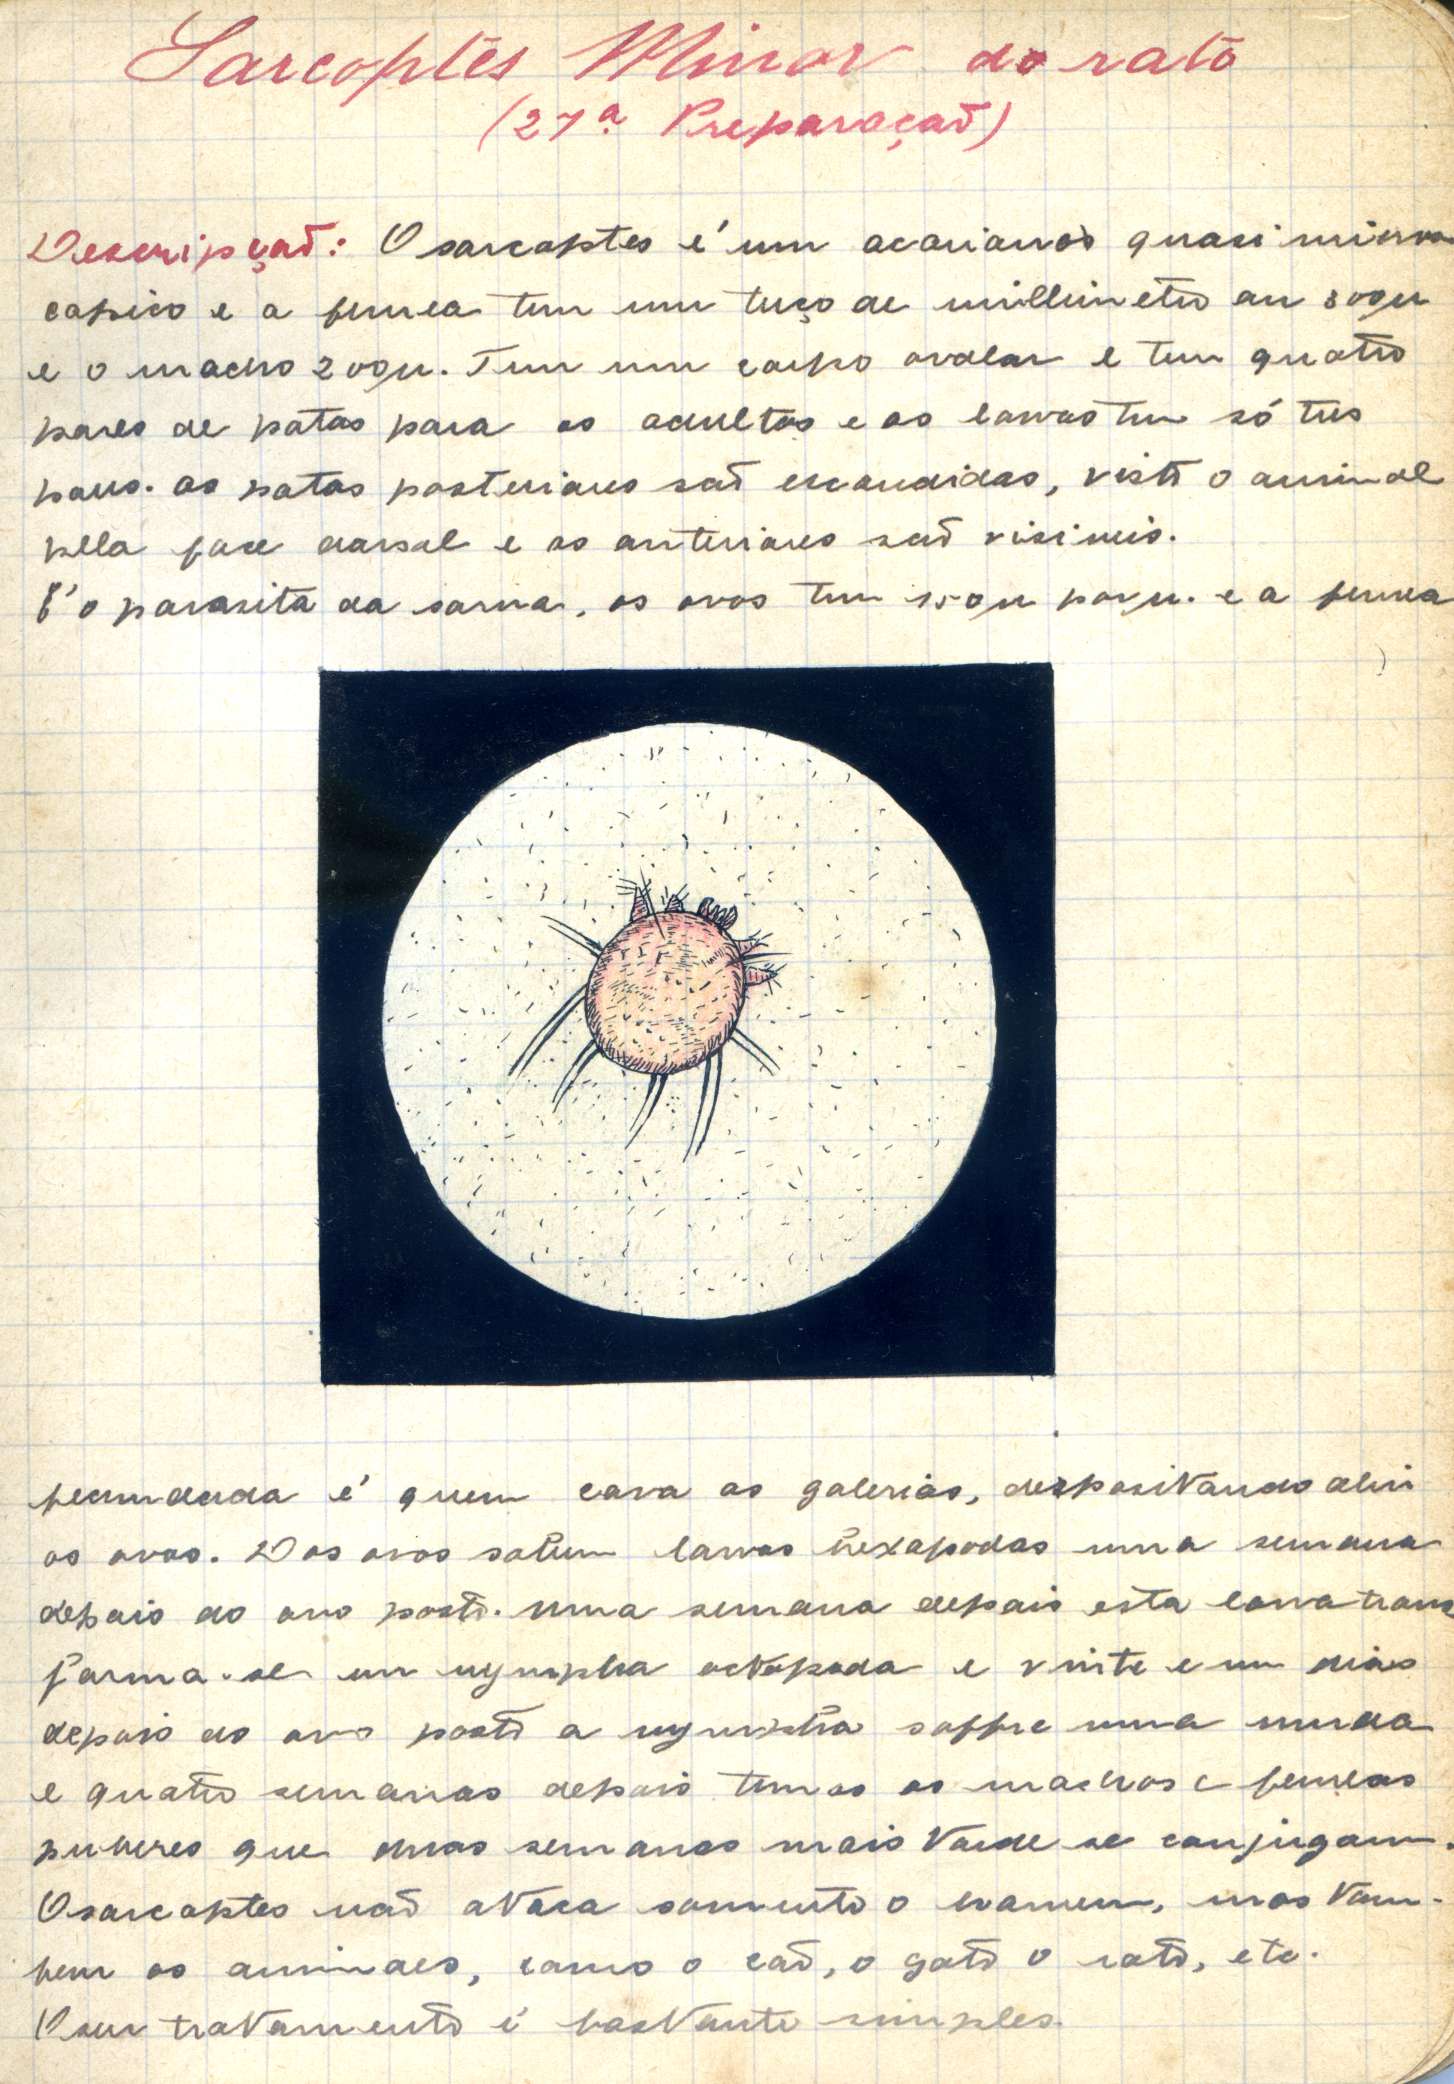 Sarcoptes Minor do rato
(27ª Preparação)
Descripção: O sarcoptes é um acariano quasi micros
copico e a femea tem um terço de millimetro ou 300µ
e o macho 200µ. Tem um corpo ovalar e tem quatro
pares de patas para os adultos e as larvas tem só tres
pares. as patas posteriores são escondidas, visto o animal
pella face dorsal e as anteriores são visiveis.
E' o parasita da sarna, os ovos tem 150µ por µ. e a femea
fecundada é quem cava as galerias, despositando ahi
os ovos. Dos ovos sahem larvas hexapodas uma semana
depois do ovo posto. Uma semana depois esta larva trans
forma-se em nympha octopoda e vinte e um dias
depois do ovo posto a nympha soffre uma muda
e quatro semanas depois temos os machos e femeas
puberes que duas semanas mais tarde se conjugam.
O sarcoptes não ataca somente o homem, mas tam-
bem os animaes, como o cão, o gato o rato, etc.
O seu tratamento é bastante simples.